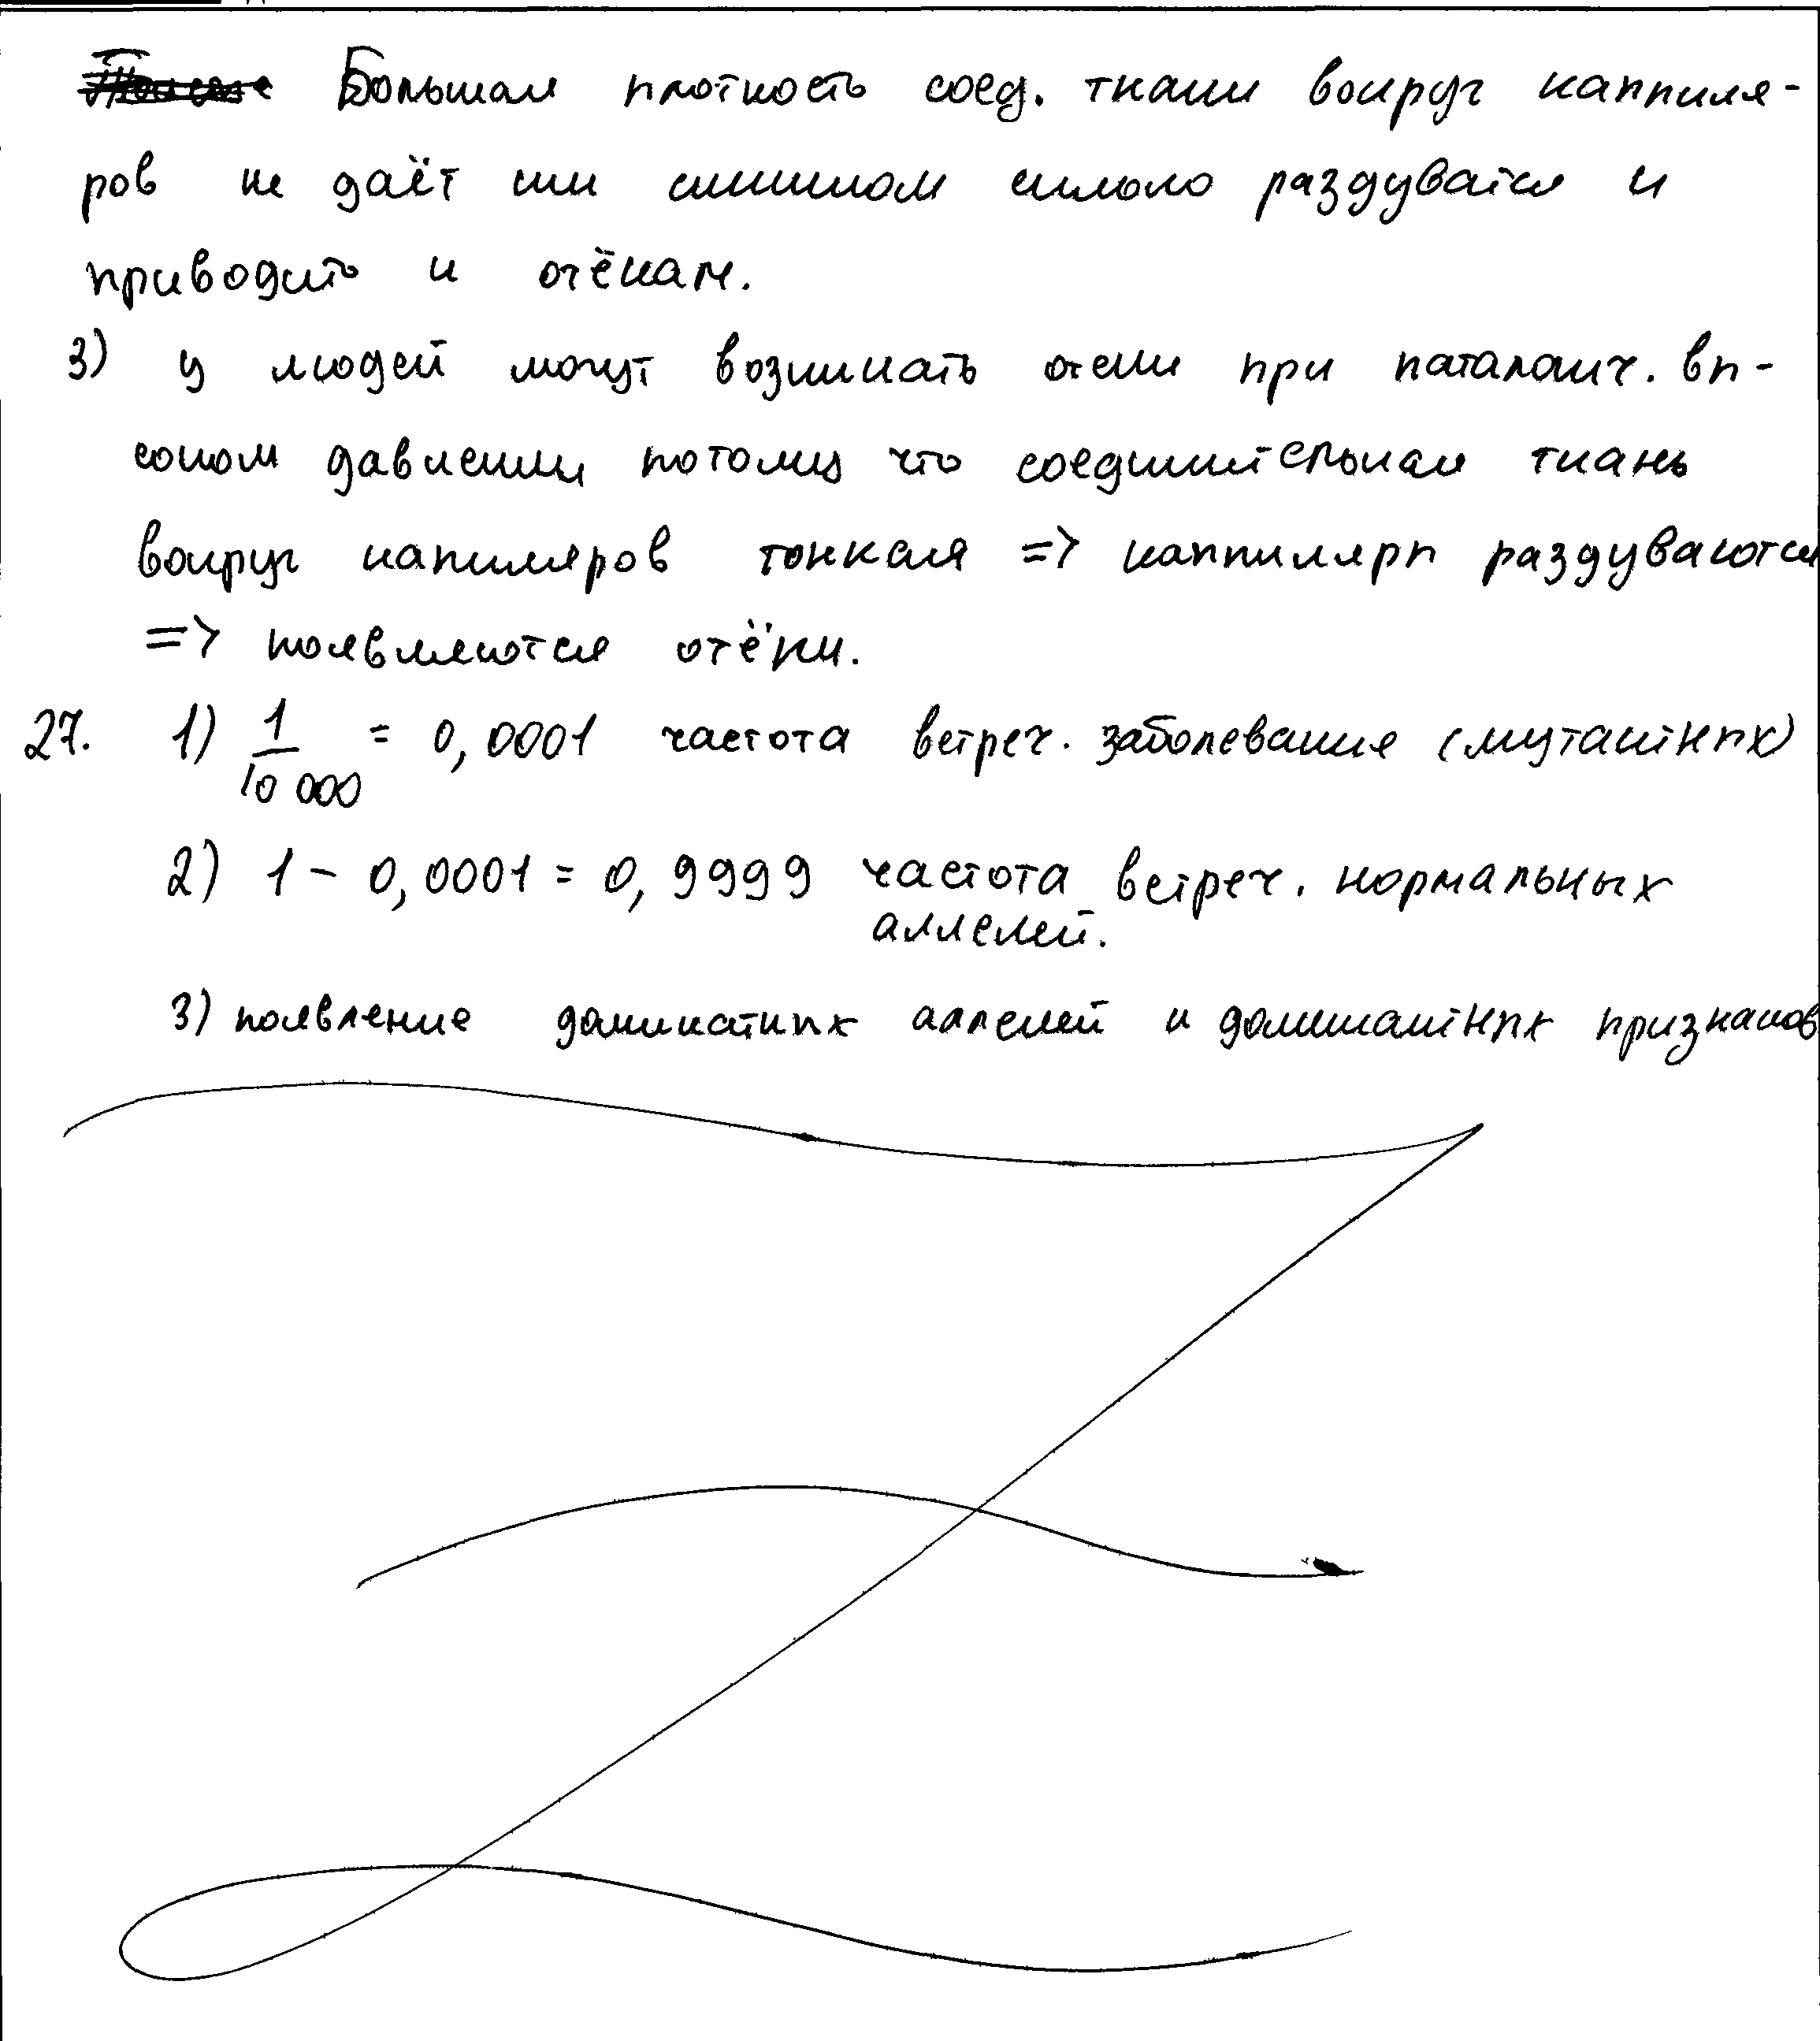 Большая плотность соед. ткани вокруг каппиля-
ров не даёт им слишком сильно раздуватся и
приводить к отёкам.
3) у людей могут возникать отеки при паталогич. вы-
соком давлении потому что соединительная ткань
вокруг капиляров тонкая => каппиляры раздуваются
=> появляются отёки.
27. 1) 1/10 000 = 0,0001 частота встреч. заболевания (мутантных)
2) 1 - 0,0001 = 0,9999 частота встреч. нормальных
аллелей.
3) появление доминатных аллелей и доминантных признаков